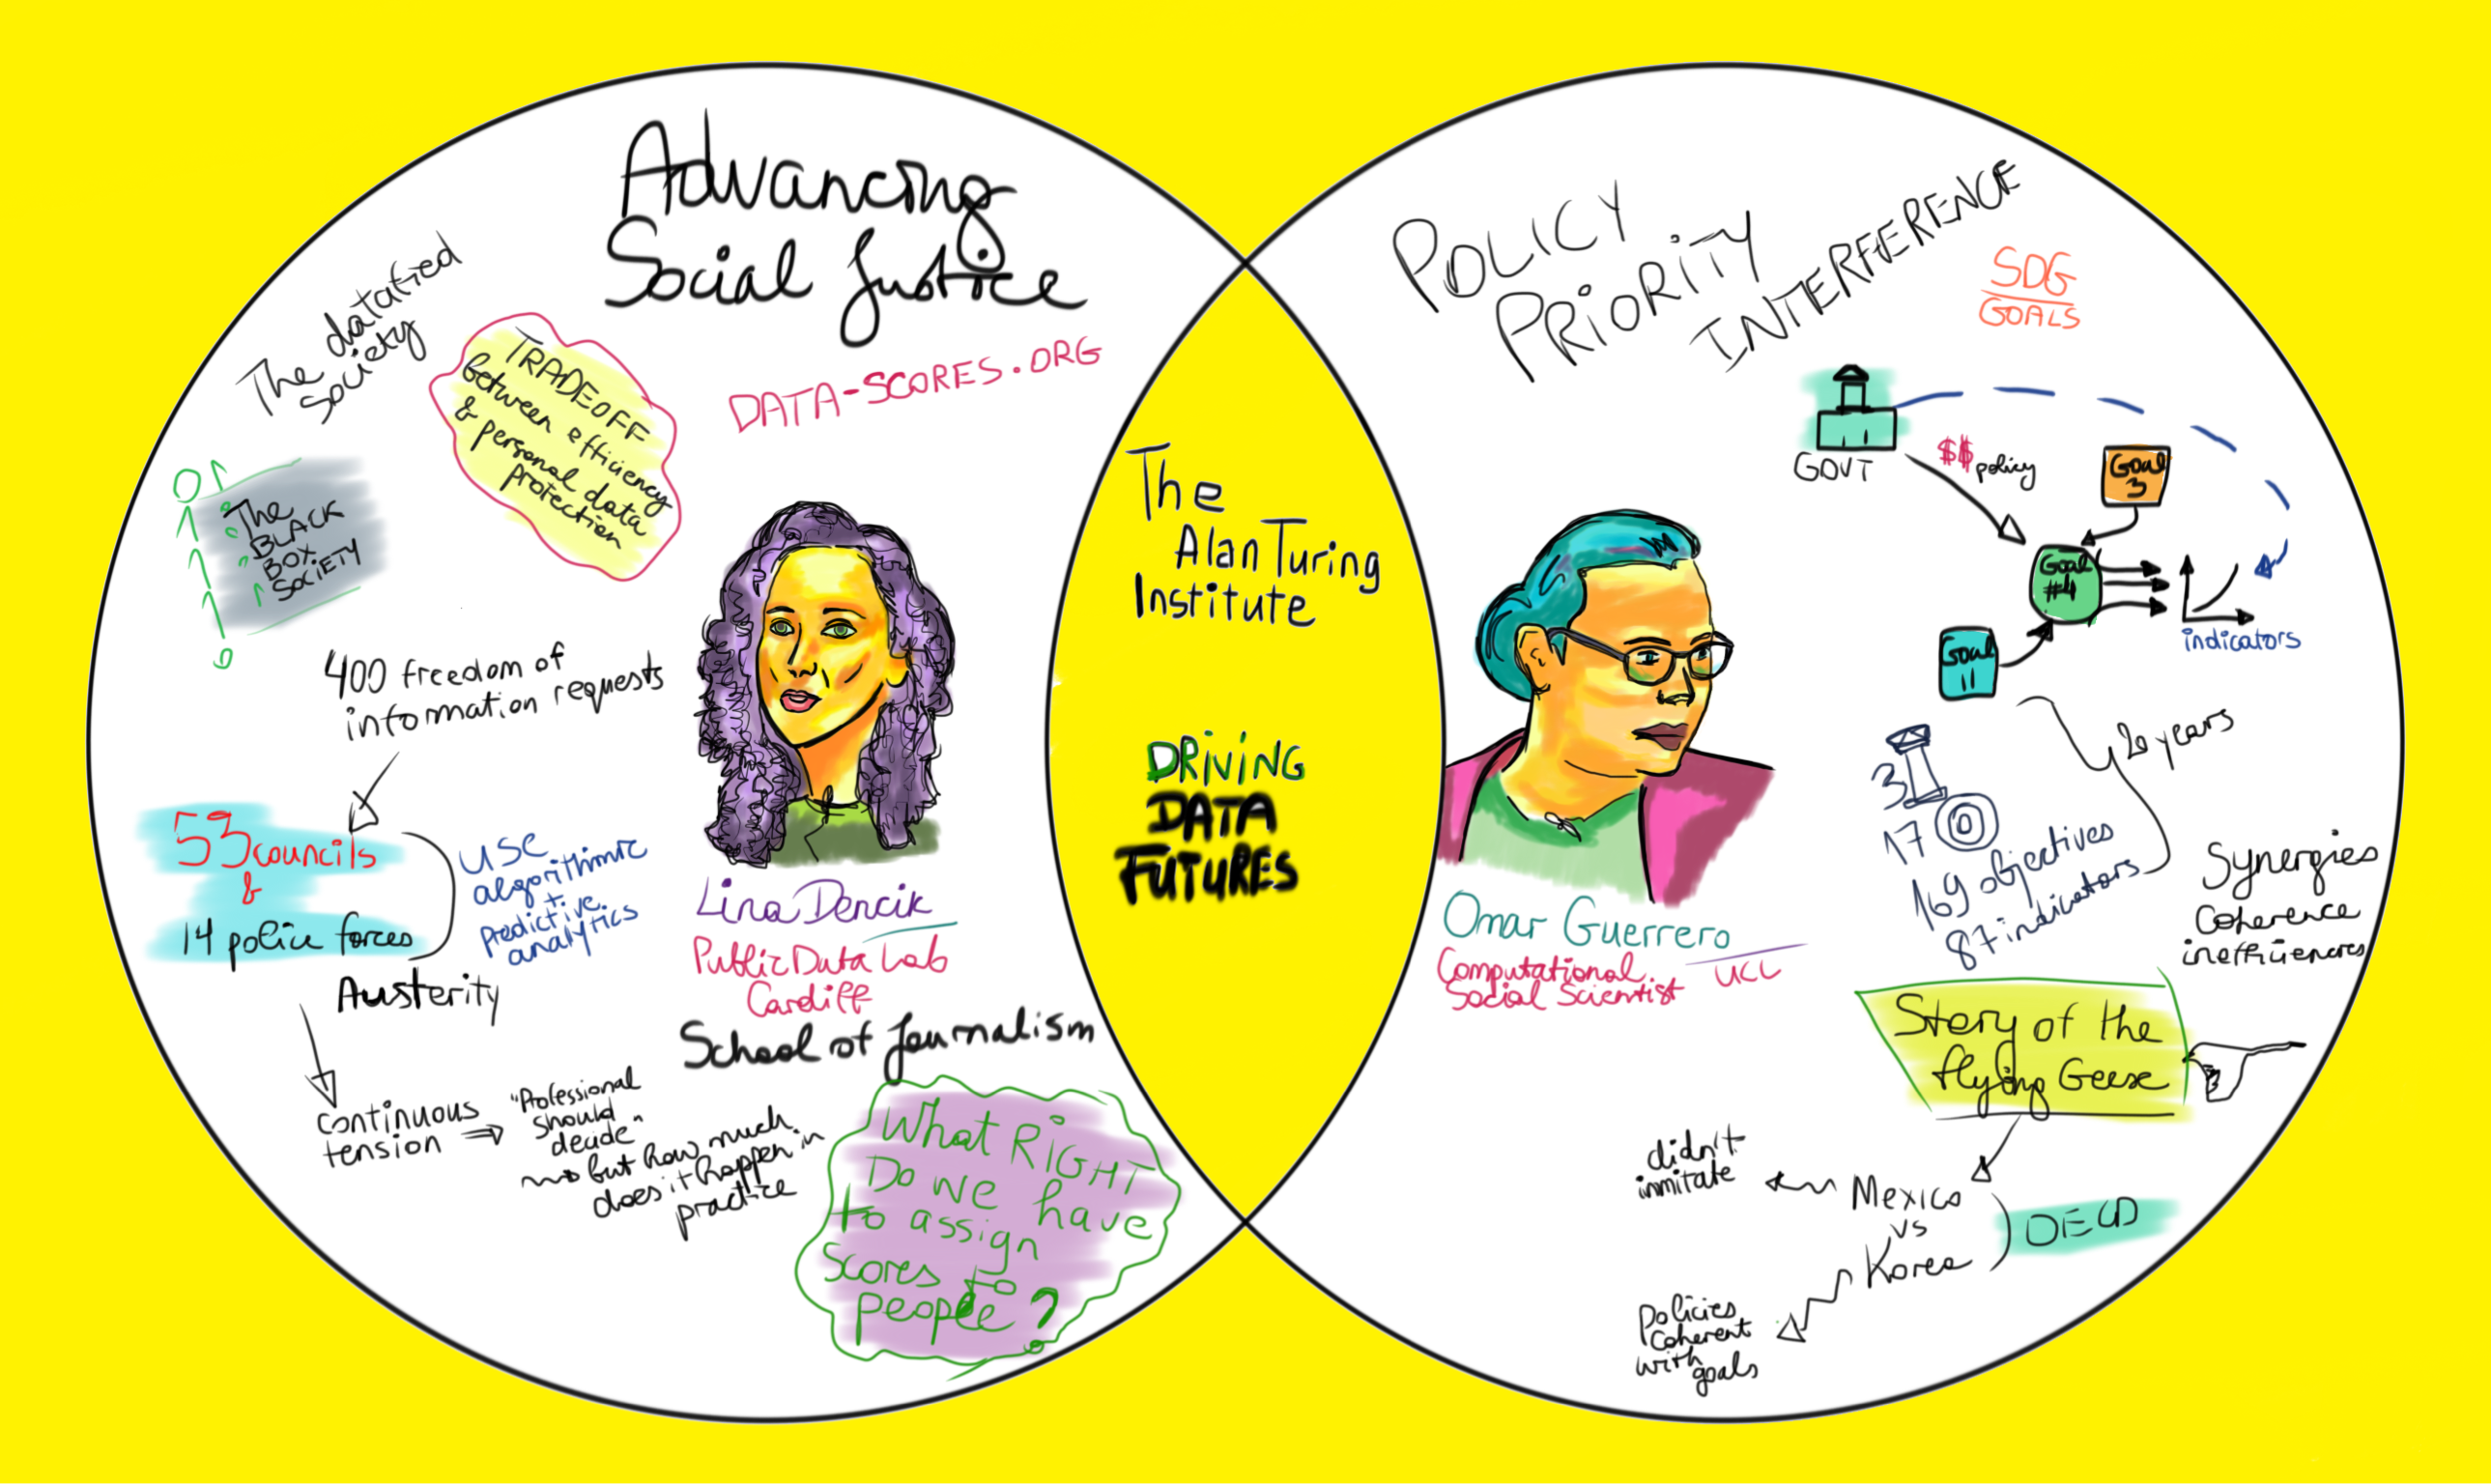 Advancing
Social Justice
The datafied
society
TRADEOFF
between efficiency
& personal data
protection
DATA-SCORES.ORG
The
BLACK
BOX
SOCIETY
400 freedom of
information requests
53 councils
&
14 police forces
USE
algorithmic
+
predictive
analytics
Austerity
continuous
tension
"Professional
should
decide"
but how much
does it happen in
practice
Lina Dencik
Public Data Lab
Cardiff
School of Journalism
What RIGHT
Do we have
to assign
scores to
people?
The
Alan Turing
Institute
DRIVING
DATA
FUTURES
POLICY
PRIORITY
INTERFERENCE
SDG
GOALS
GOVT
$$ policy
Goal
3
Goal
#4
Goal
11
indicators
20 years
3
17
169 objectives
87 indicators
Synergies
Coherence
inefficiencies
Omar Guerrero
Computational
Social Scientist
UCL
Story of the
flying Geese
didn't
inmitate
Mexico
vs
Korea
OECD
policies
coherent
with
goals